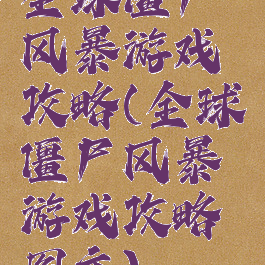 全球僵尸
风暴游戏
攻略(全球
僵尸风暴
游戏攻略